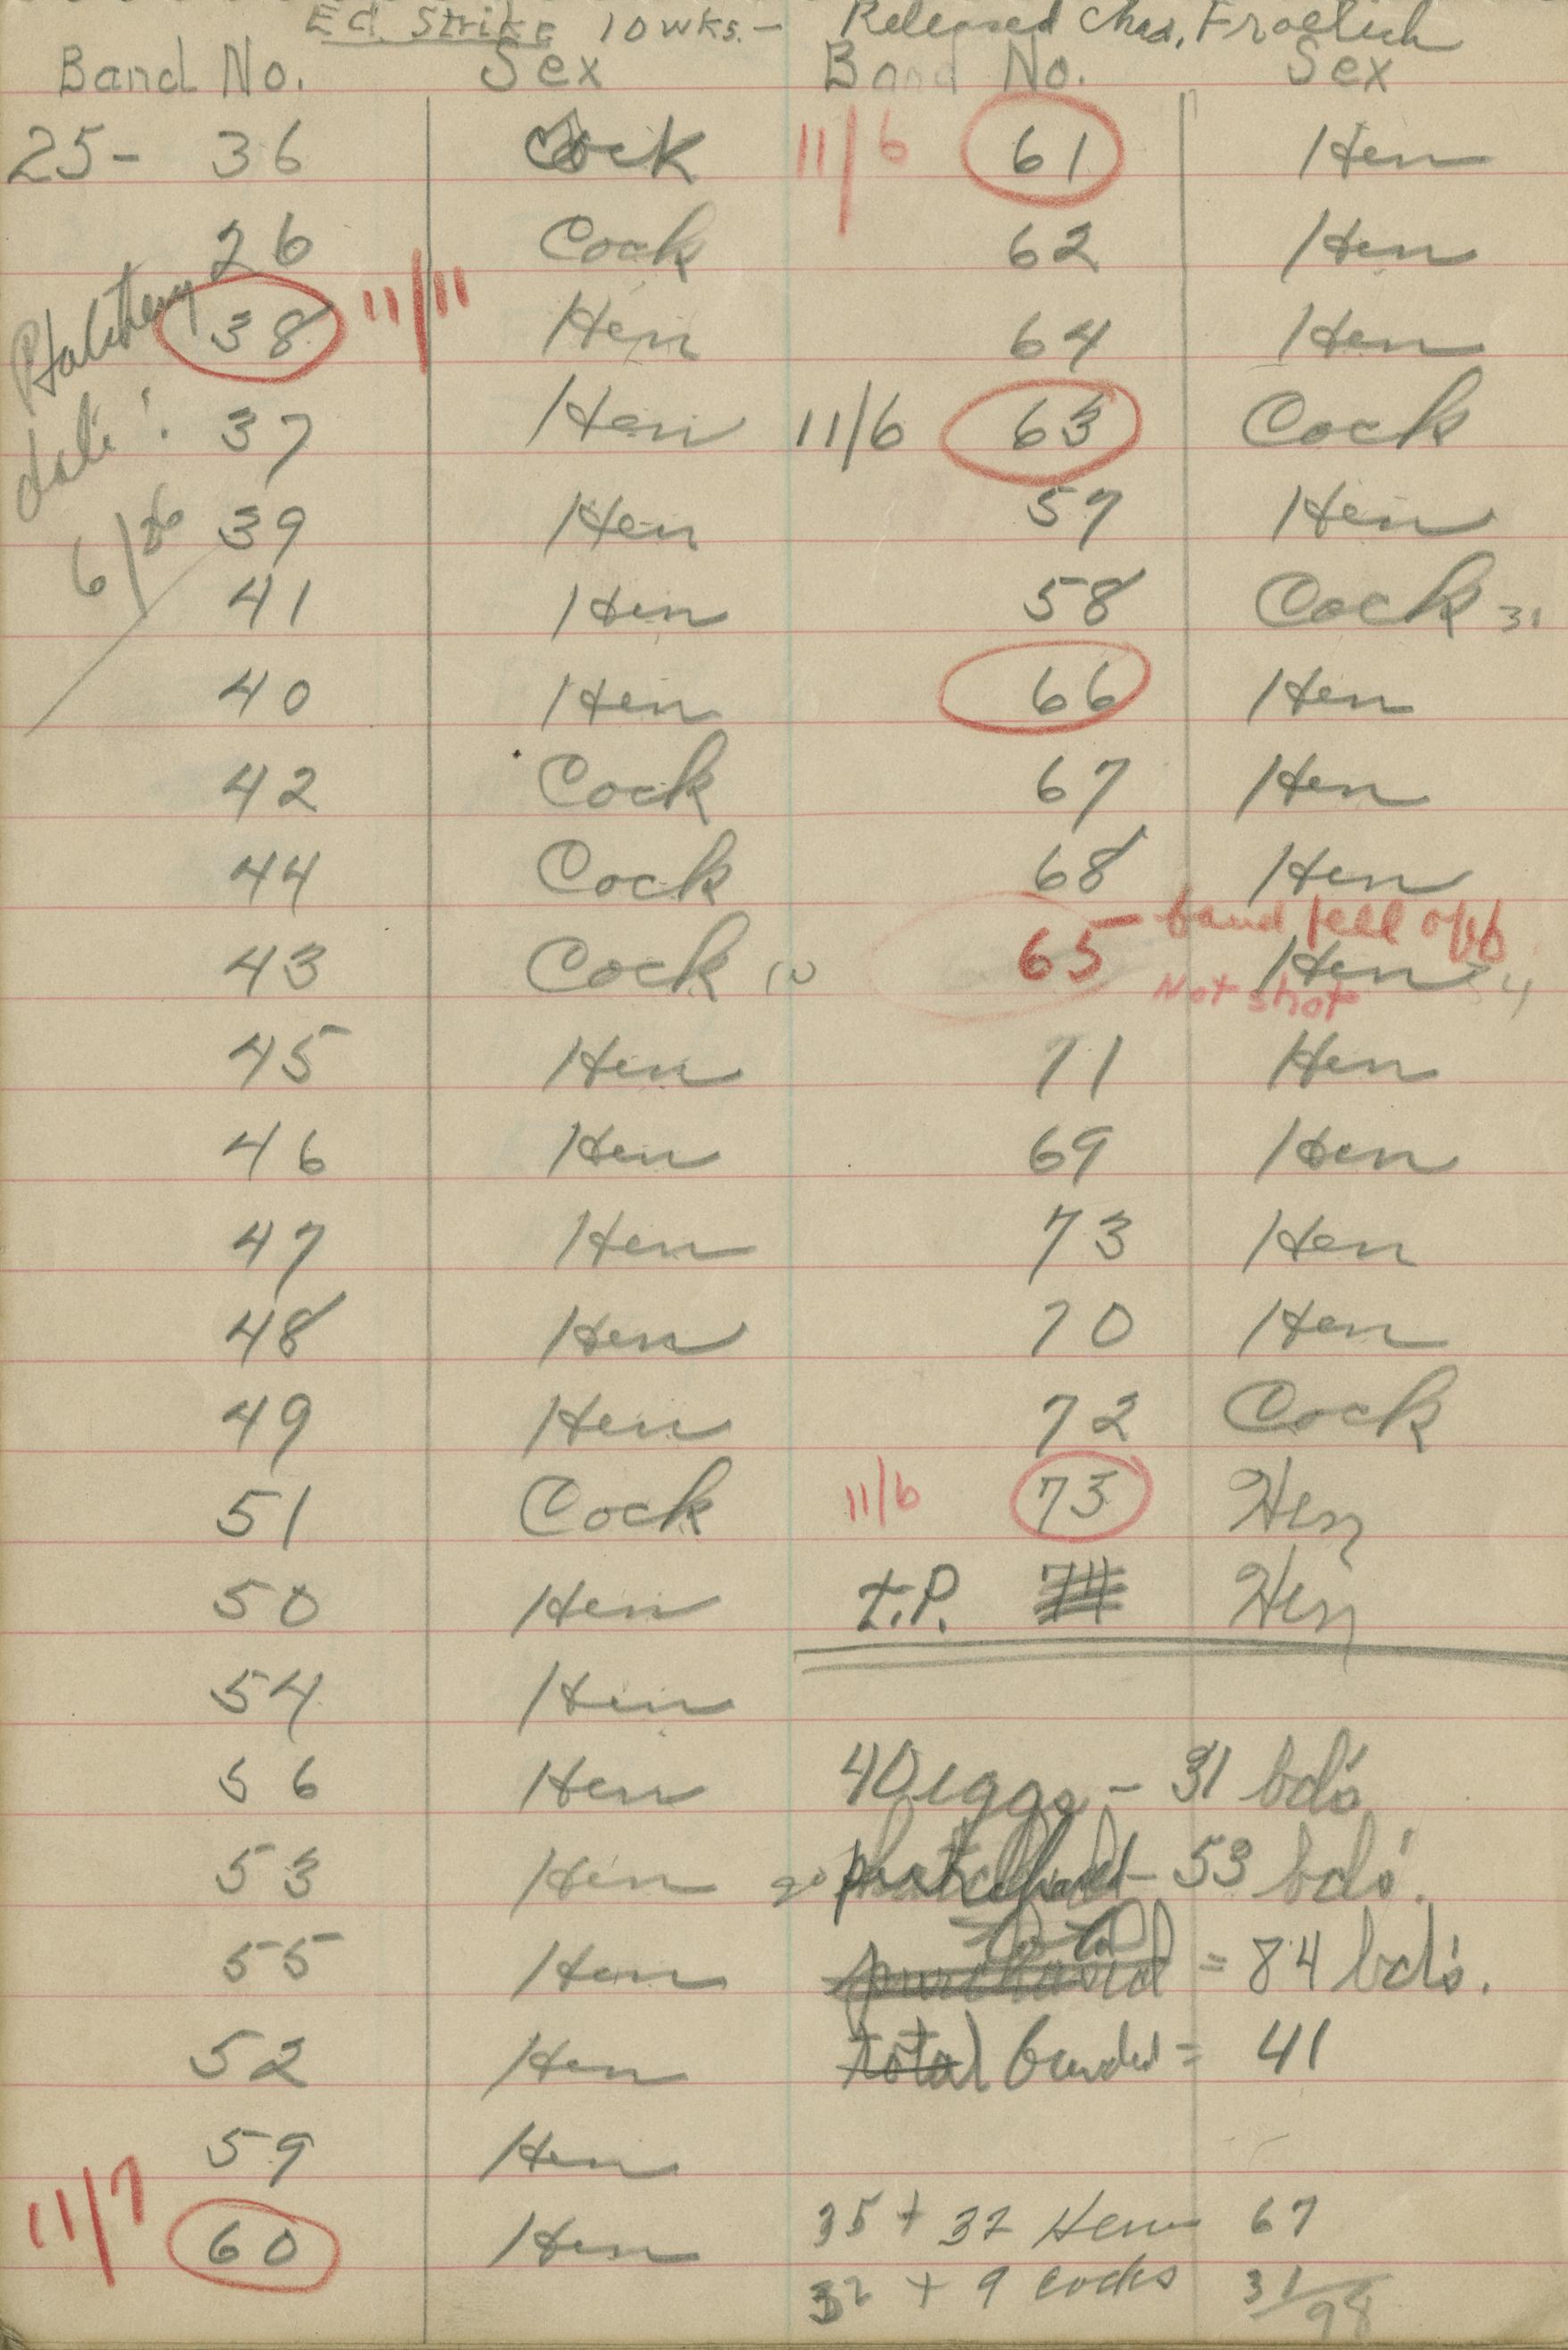 Ed. Strike 10 wks. - Released Chas. Froelich
Band No. Sex Band No. Sex
25- 36 Cock 11/6 61 Hen
26 Cock 62 Hen
38 11/11 Hen 64 Hen
Hatching date:
37 Hen 11/6 63 Cock
39 Hen 57 Hen
6/
41 Hen 58 Cock 31
40 Hen 66 Hen
42 Cock 67 Hen
44 Cock 68 Hen
43 Cock 10 65 - band fell off Hen
Not shot
45 Hen 71 Hen
46 Hen 69 Hen
47 Hen 73 Hen
48 Hen 70 Hen
49 Hen 72 Cock
51 Cock 11/6 73 Hen
50 Hen T.P. 74 Hen
54 Hen
56 Hen 40 eggs - 31 bds
53 Hen purchased - 53 bds.
55 Hen purchased total = 84 bds.
52 Hen total banded = 41
59 Hen
11/7 60 Hen 35 + 32 Hens 67
32 + 9 cocks 31/98